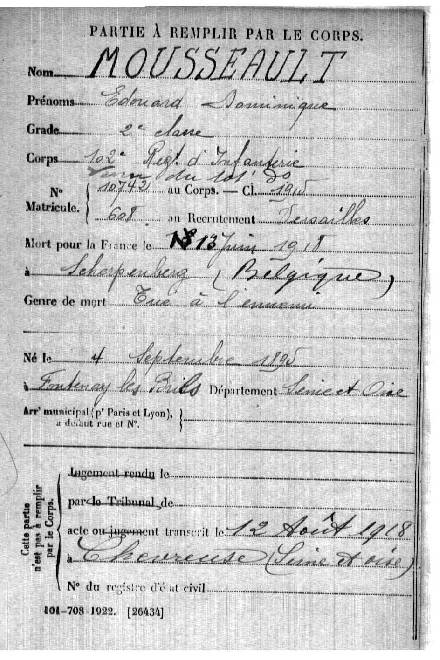 PARTIE À REMPLIR PAR LE CORPS.
Nom MOUSSEAULT
Prénoms Edouard Dominique
Grade 2e classe
Corps 102e Regt d'Infanterie
venu du 101e do
N° Matricule. 10742 au Corps. — Cl. 1915
608 au Recrutement Versailles
Mort pour la France le 13 Juin 1918
à Scherpenberg (Belgique)
Genre de mort Tué à l'ennemi
Né le 4 Septembre 1895
à Fontenay les Briis Département Seine et Oise
Arrt municipal (pr Paris et Lyon), à défaut rue et N°.
Cette partie n'est pas à remplir par le Corps.
Jugement rendu le
par le Tribunal de
acte ou jugement transcrit le 12 Août 1918
à Chevreuse (Seine et oise)
N° du registre d'état civil
101-708 1922. [26434]